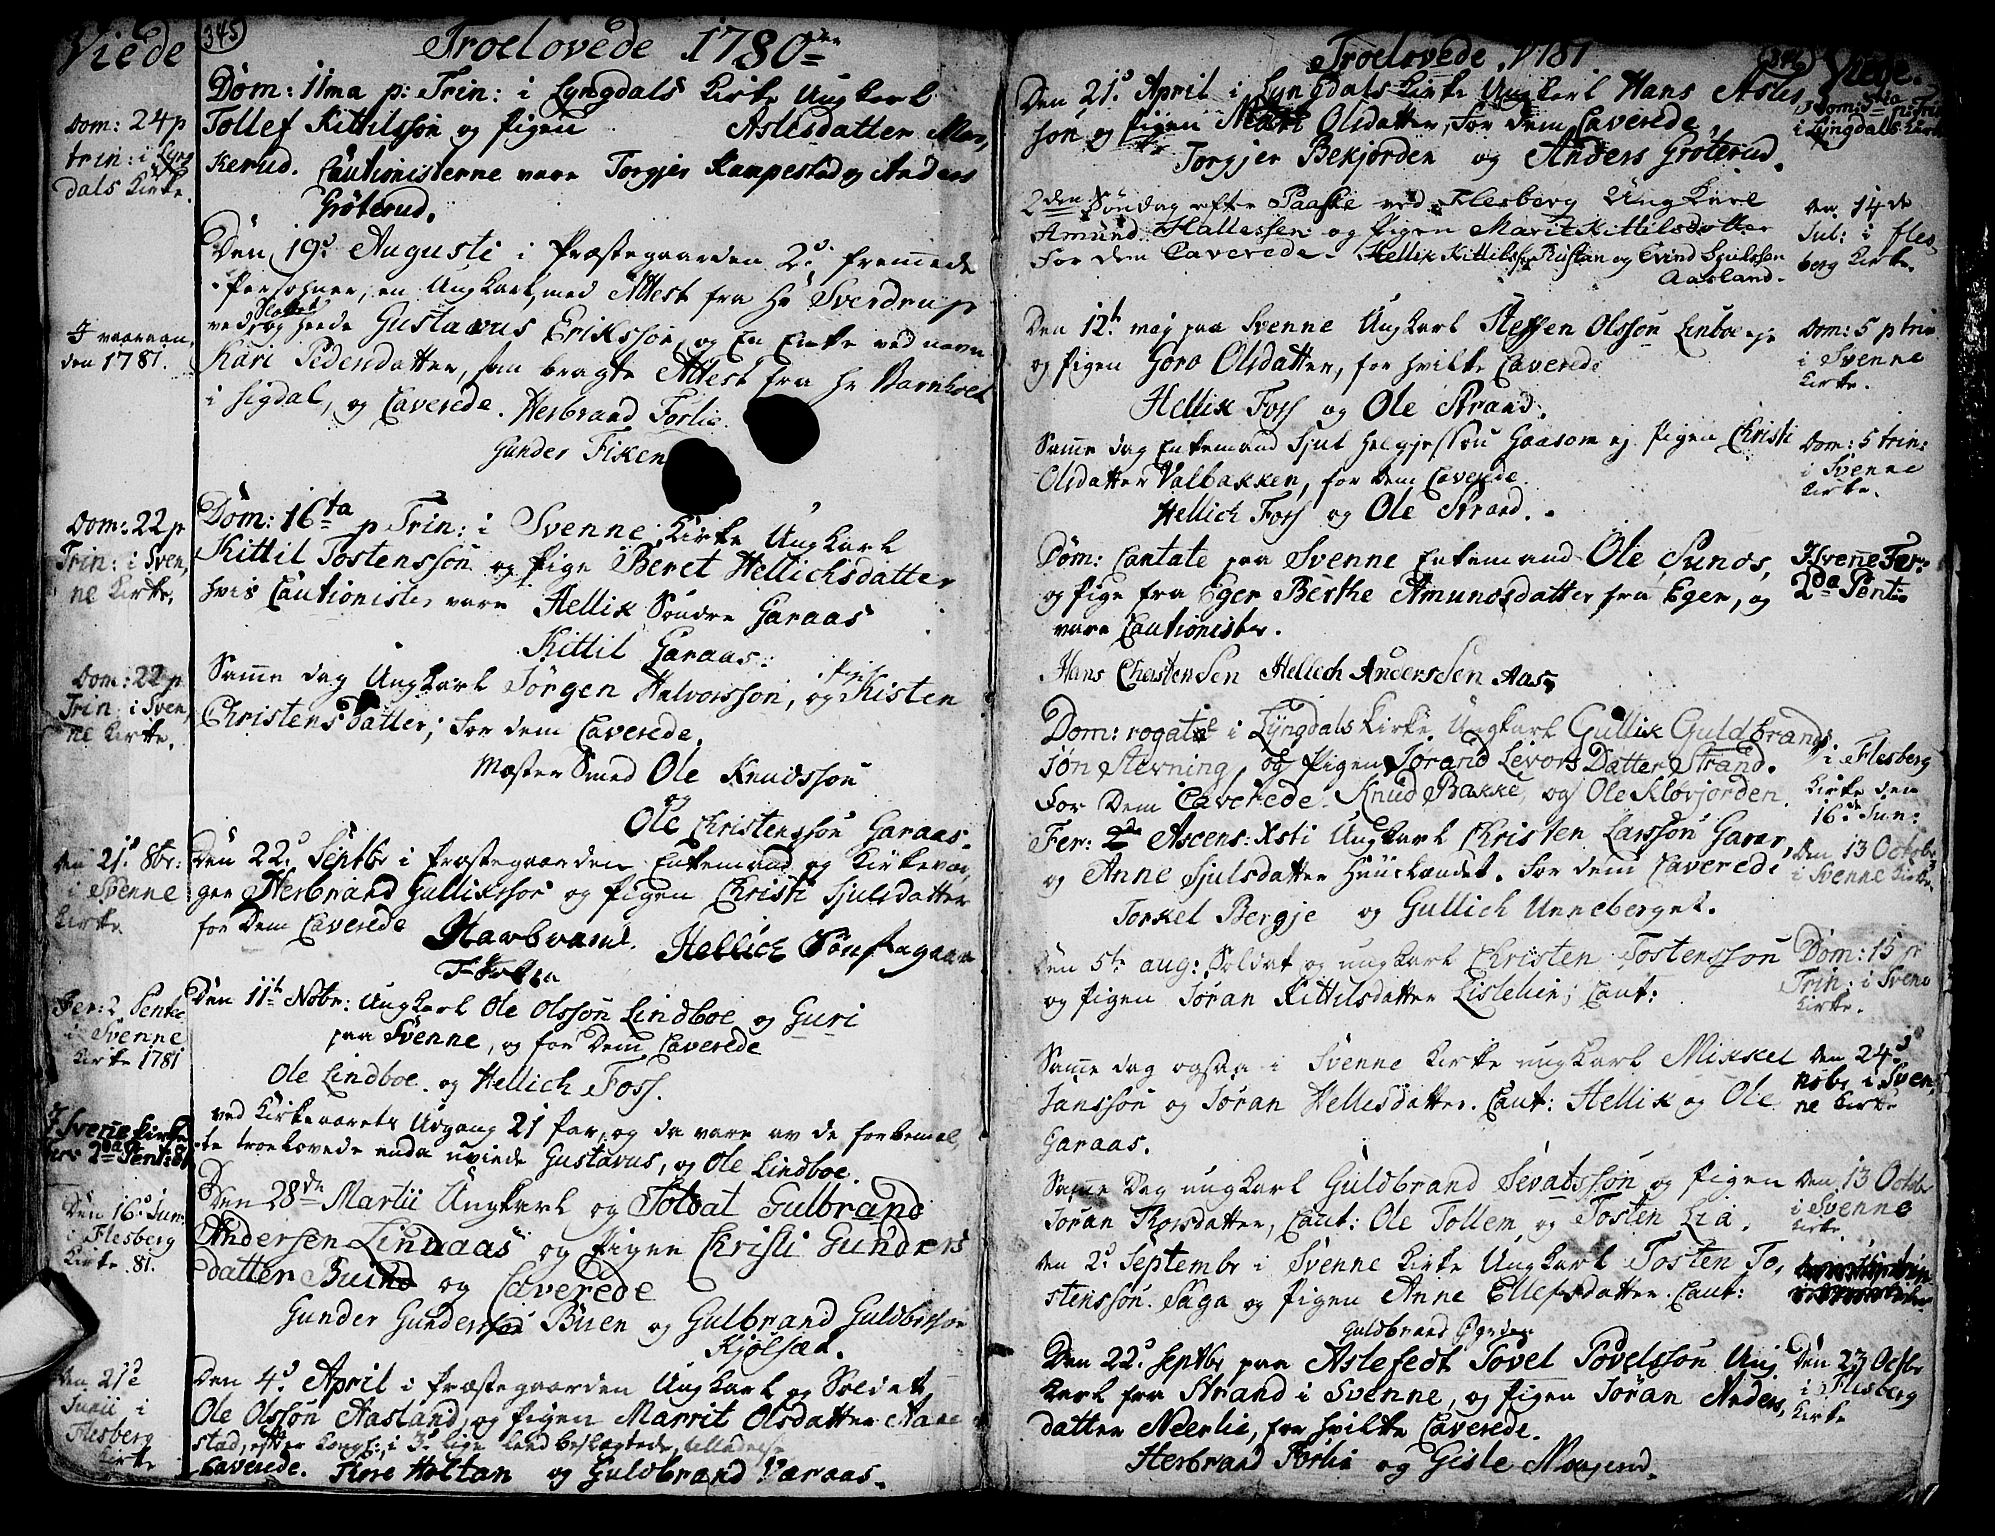 Viede
345
Troelovede 1780
Dom: 24 p
trin: i Lyng
dals Kirke.
Dom: 11ma p: Trin: i Lyngdals Kirke Ungkarl
Tollef Kittilsson og Pigen Aslesdatter Mar,
kerud. Cautionisterne vare Torgjer Kampestad og Anders
Gröterud.
I vaaraan,
den 1781.
Den 19de Augusti i Præstegaarden 2de fremmede
Personer, en Ungkarl, med Attest fra Hr Sverdrup
ved Navn Gustavus Eriksson, og En Enke ved navn
Kari Pedersdatter, som bragte Attest fra Hr Barnholt
i Sigdal, og Caverede. Herbrand Forlie
Gunder Fiken
Dom: 22 p
Trin: i Sven,
ne Kirke.
Dom: 16ta p Trin: i Svenne Kirke Ungkarl
Kittil Tostensson og Pige Beret Hellichsdatter
hvis Cautionister vare Hellik Söndre Garaas
Kittil Garaas:
Dom: 22 p
Trin: i Sven,
ne Kirke.
Samme dag Ungkarl Jörgen Halvorsson, og Pigen Kisten
Christensdatter, for dem Caverede.
Mæster Smed Ole Knudsson
og
Ole Christensson Garaas.
Den 21d 8br:
i Svenne
Kirke.
Den 22d Septbr i Præstegaarden Enkemand og Kirkevær,
ger Herbrand Gulliksson og Pigen Christi Sjulsdatter
for Dem Caverede Harbrand Hellich Sönstagaar
Forlie
Fer: 2 Pente
i Svenne
Kirke 1781
Den 11te Nobr: Ungkarl Ole Olsson Lindboe og Guri
paa Svenne, og for Dem Caverede
Ole Lindboe og Hellich Foss.
ved Kirkeaarets Udgang 21 Par, og da vare av de forbemel,
te troelovede enda uviede Gustavus, og Ole Lindboe.
I Svenne Kirke
Fer: 2da Pent: 81
Den 16d Jun:
i Flesberg
Kirke 81.
Den 28de Martii Ungkarl og Soldat Gulbrand
Andersen Lindaas og Pigen Christi Gunders
datter Buind og Caverede
Gunder Gunderson Buen og Gulbrand Guldbrsson
Kjölsæd.
Den 21de
Junii i
Flesberg
Kirke
Den 4d April i Præstegaarden Ungkarl og Soldat
Ole Olsson Aasland, og Pigen Marrit Olsdatter Aare
stad, efter Kongl: i 3de lige Leed beslægtede, tilladelse
Caverede. Tlore Holtan og Guldbrand Varaas.
Troelovede 1781
346 Viede.
Den 21d April i Lyngdals Kirke Ungkarl Hans Asles
son og Pigen Marit Olsdatter, for dem Caverede
Torgjer Bekjorden og Anders Gröterud.
Dom: 5ta p: Trin
i Lyngdals Kirke
2den Söndag efter Paaske ved Flesberg Ungkarl
Amund Hallessen og Pigen Marit Kittilsdatter
for dem Caverede. Hellik Kittilss: Rustan og Evind Sjulssen
Aasland.
Den 14de
Jul: i Fles,
berg Kirke.
Den 12te maj paa Svenne Ungkarl Steffen Olsson Linboe eje
og Pigen Goro Olsdatter, for hvilke Caverede
Hellik Foss og Ole Strand.
Dom: 5 p trin
i Svenne
Kirke.
Samme dag Enkemand Sjul Helgjesson Haasom ej. Pigen Christi
Olsdatter Valbakken, for dem Caverede
Hellich Foss og Ole Strand.
Dom: 5 trin:
i Svenne
Kirke.
Dom: Cantate paa Svenne Enkemand Ole Sunds,
og Pige fra Eger Berthe Amundsdatter fra Eger, og
vare Cautionister.
Hans ChristenSen Hellich AndersSen Aas,
I Svenne Fer:
2da Pent:
Dom: rogate i Lyngdals Kirke Ungkarl Gullik Guldbrands
sön Stevning, og Pigen Sörand Levors Datter Strand.
For Dem Caverede. Knud Bakke, og Ole Klovjorden.
i Flesberg
Kirke den
16de Jun:
Fer: 2d Ascens: Xsti Ungkarl Christen Larsson Garar,
og Anne Sjulsdatter Huuslandet. for dem Caverede
Torkel Bergje og Gullich Unneberget.
Den 13 Octobr
i Svenne Kirke.
Den 5te aug: Soldat og ungkarl Christen Tostensson
og Pigen Söran Kittilsdatter Lislelien; Caut:
Dom: 15 p
Trin: i Svenne
Kirke.
Samme dag ogsaa i Svenne Kirke ungkarl Mikkel
Jansson og Söran Hellesdatter. Caut: Hellik og Ole
Garaas.
Den 24d
nobr i Sven,
ne Kirke
Samme Dag ungkarl Guldbrand Sevatsson og Pigen
Söran Thorsdatter, Caut: Ole Tollem, og Tosten Lia.
Den 13 Octobr
i Svenne
Kirke.
Den 2d Septembr i Svenne Kirke Ungkarl Tosten To,
stensson. Saga og Pigen Anne Ellefsdatter. Caut:
Guldbrand
Den 22d Septbr paa Aslefedt Povel Povelsson Ung
karl fra Strand i Svenne, og Pigen Söran Anders,
datter Neerlie, for hvilke Caverede.
Herbrand Forlie og Gisle Mogerud.
Den 23 Octbr
i Flesberg
Kirke